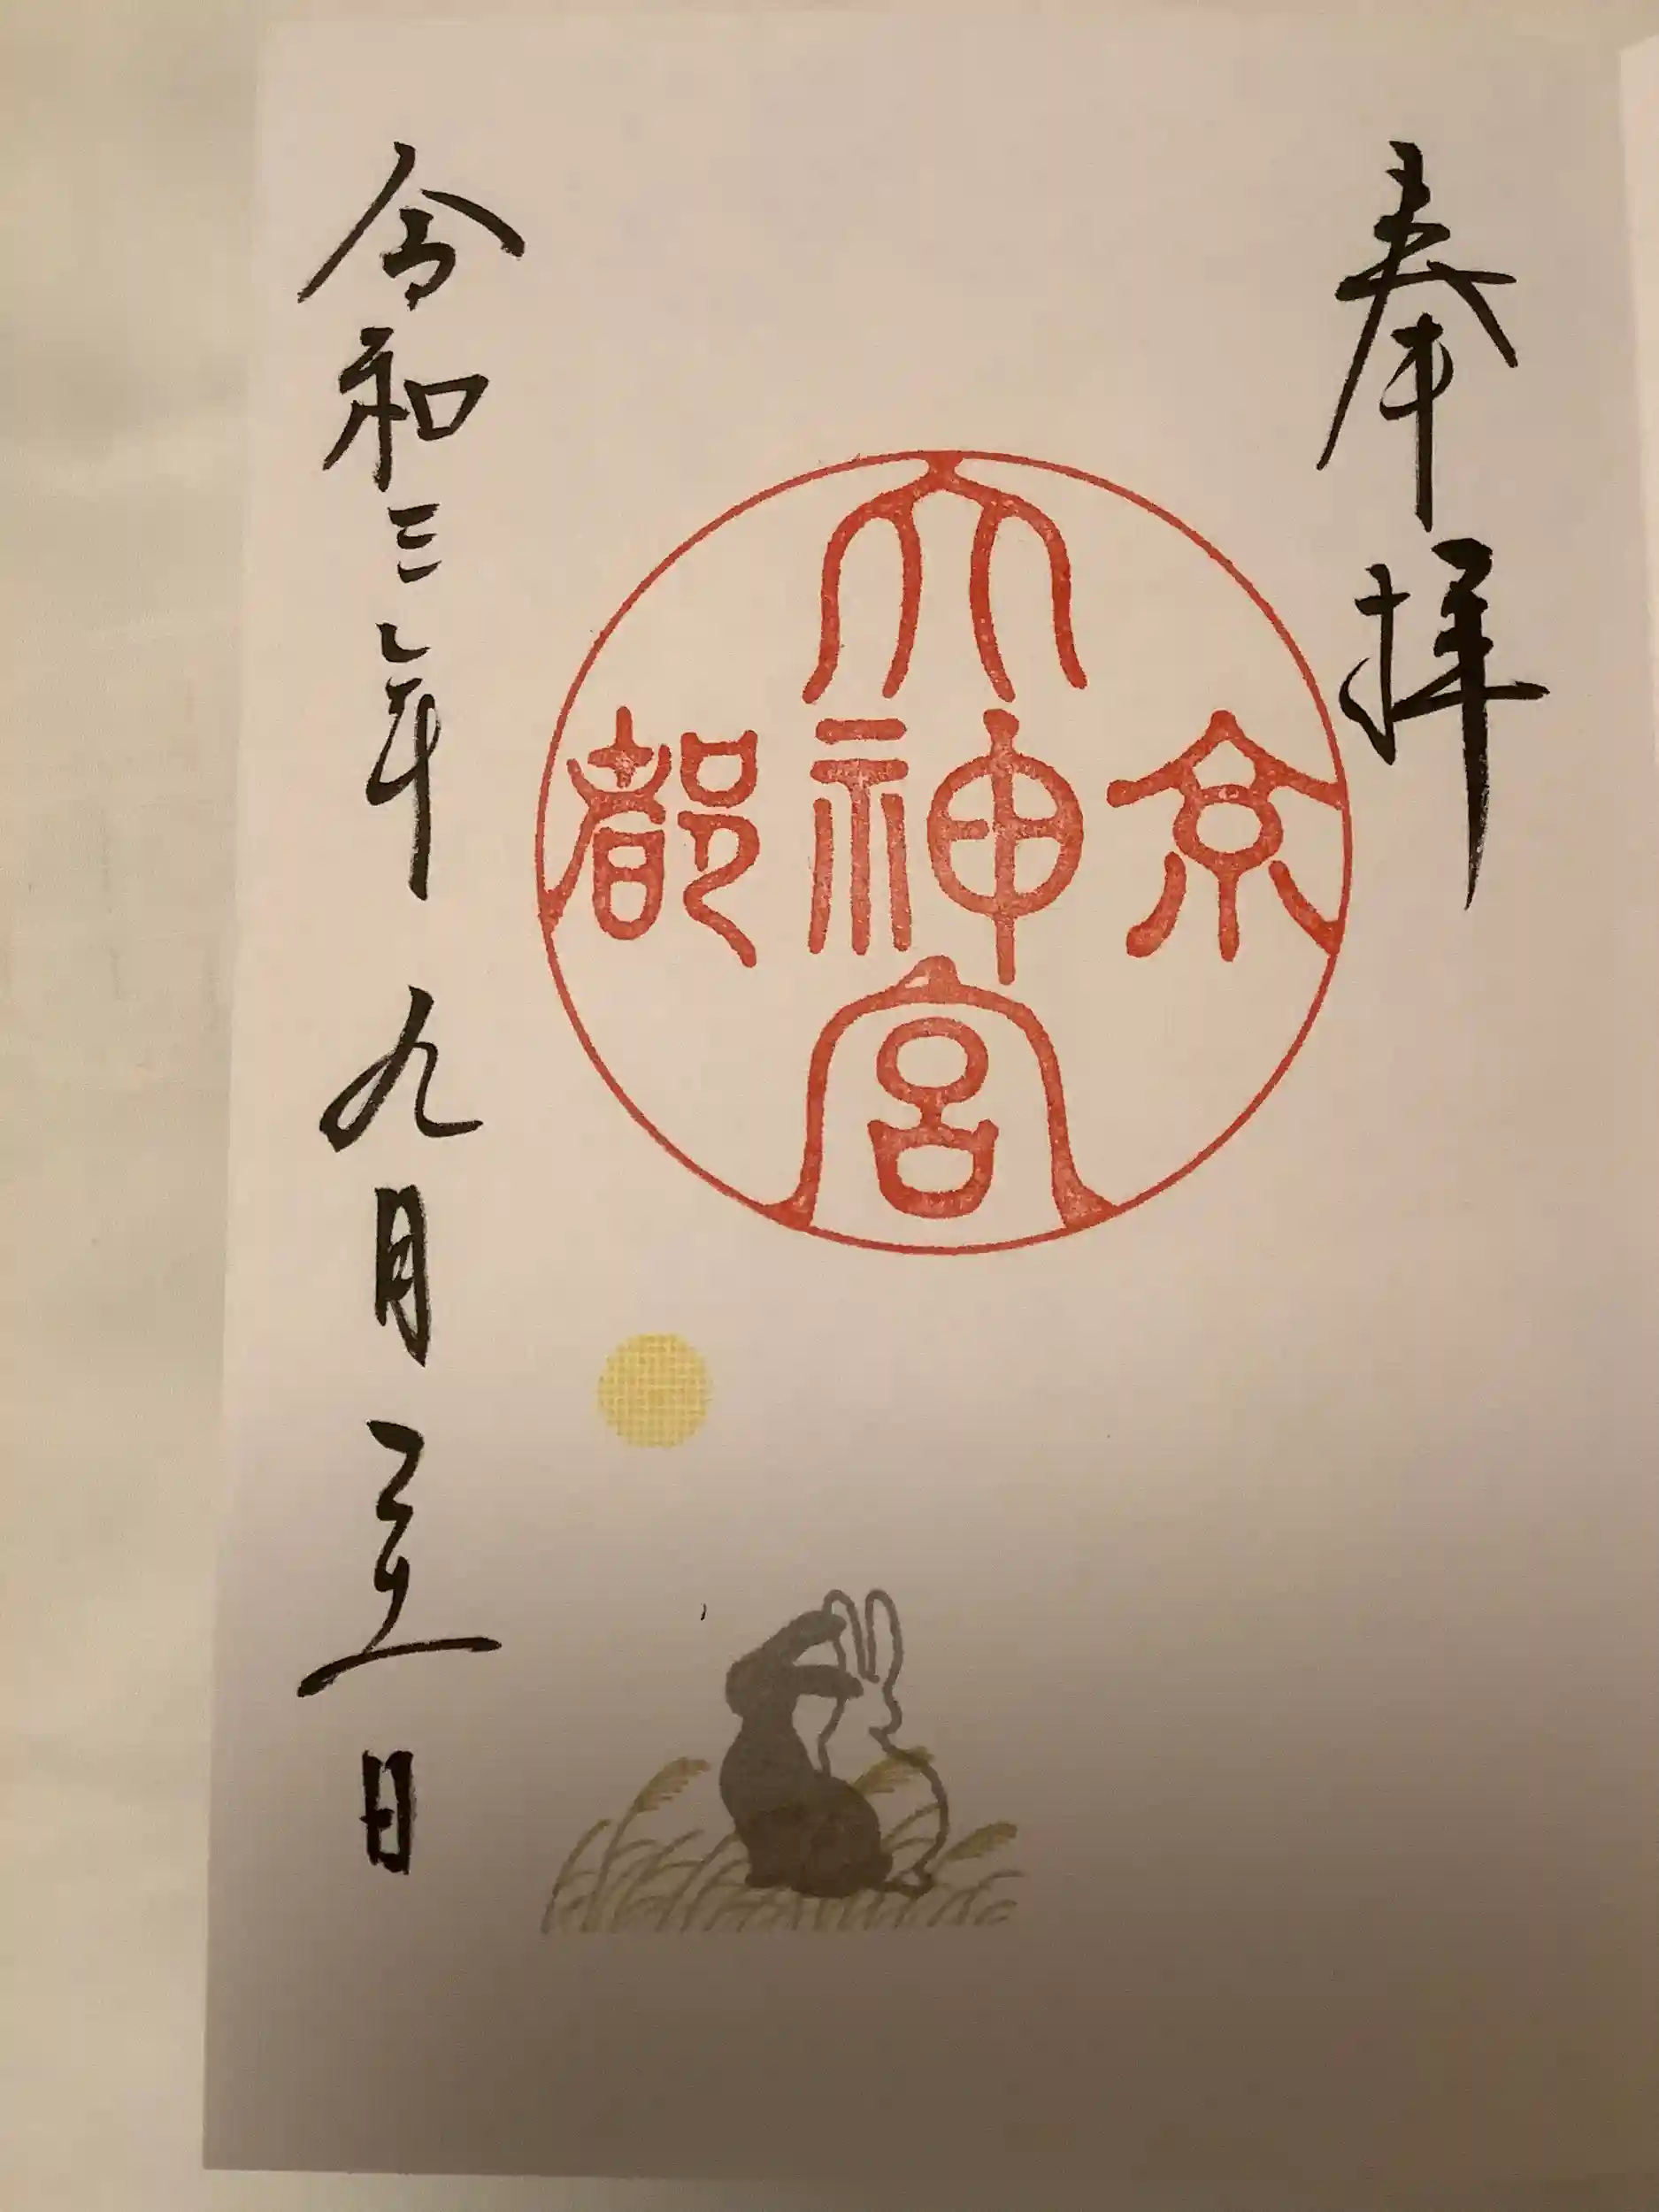 奉拝
京都大神宮
令和三年九月五日